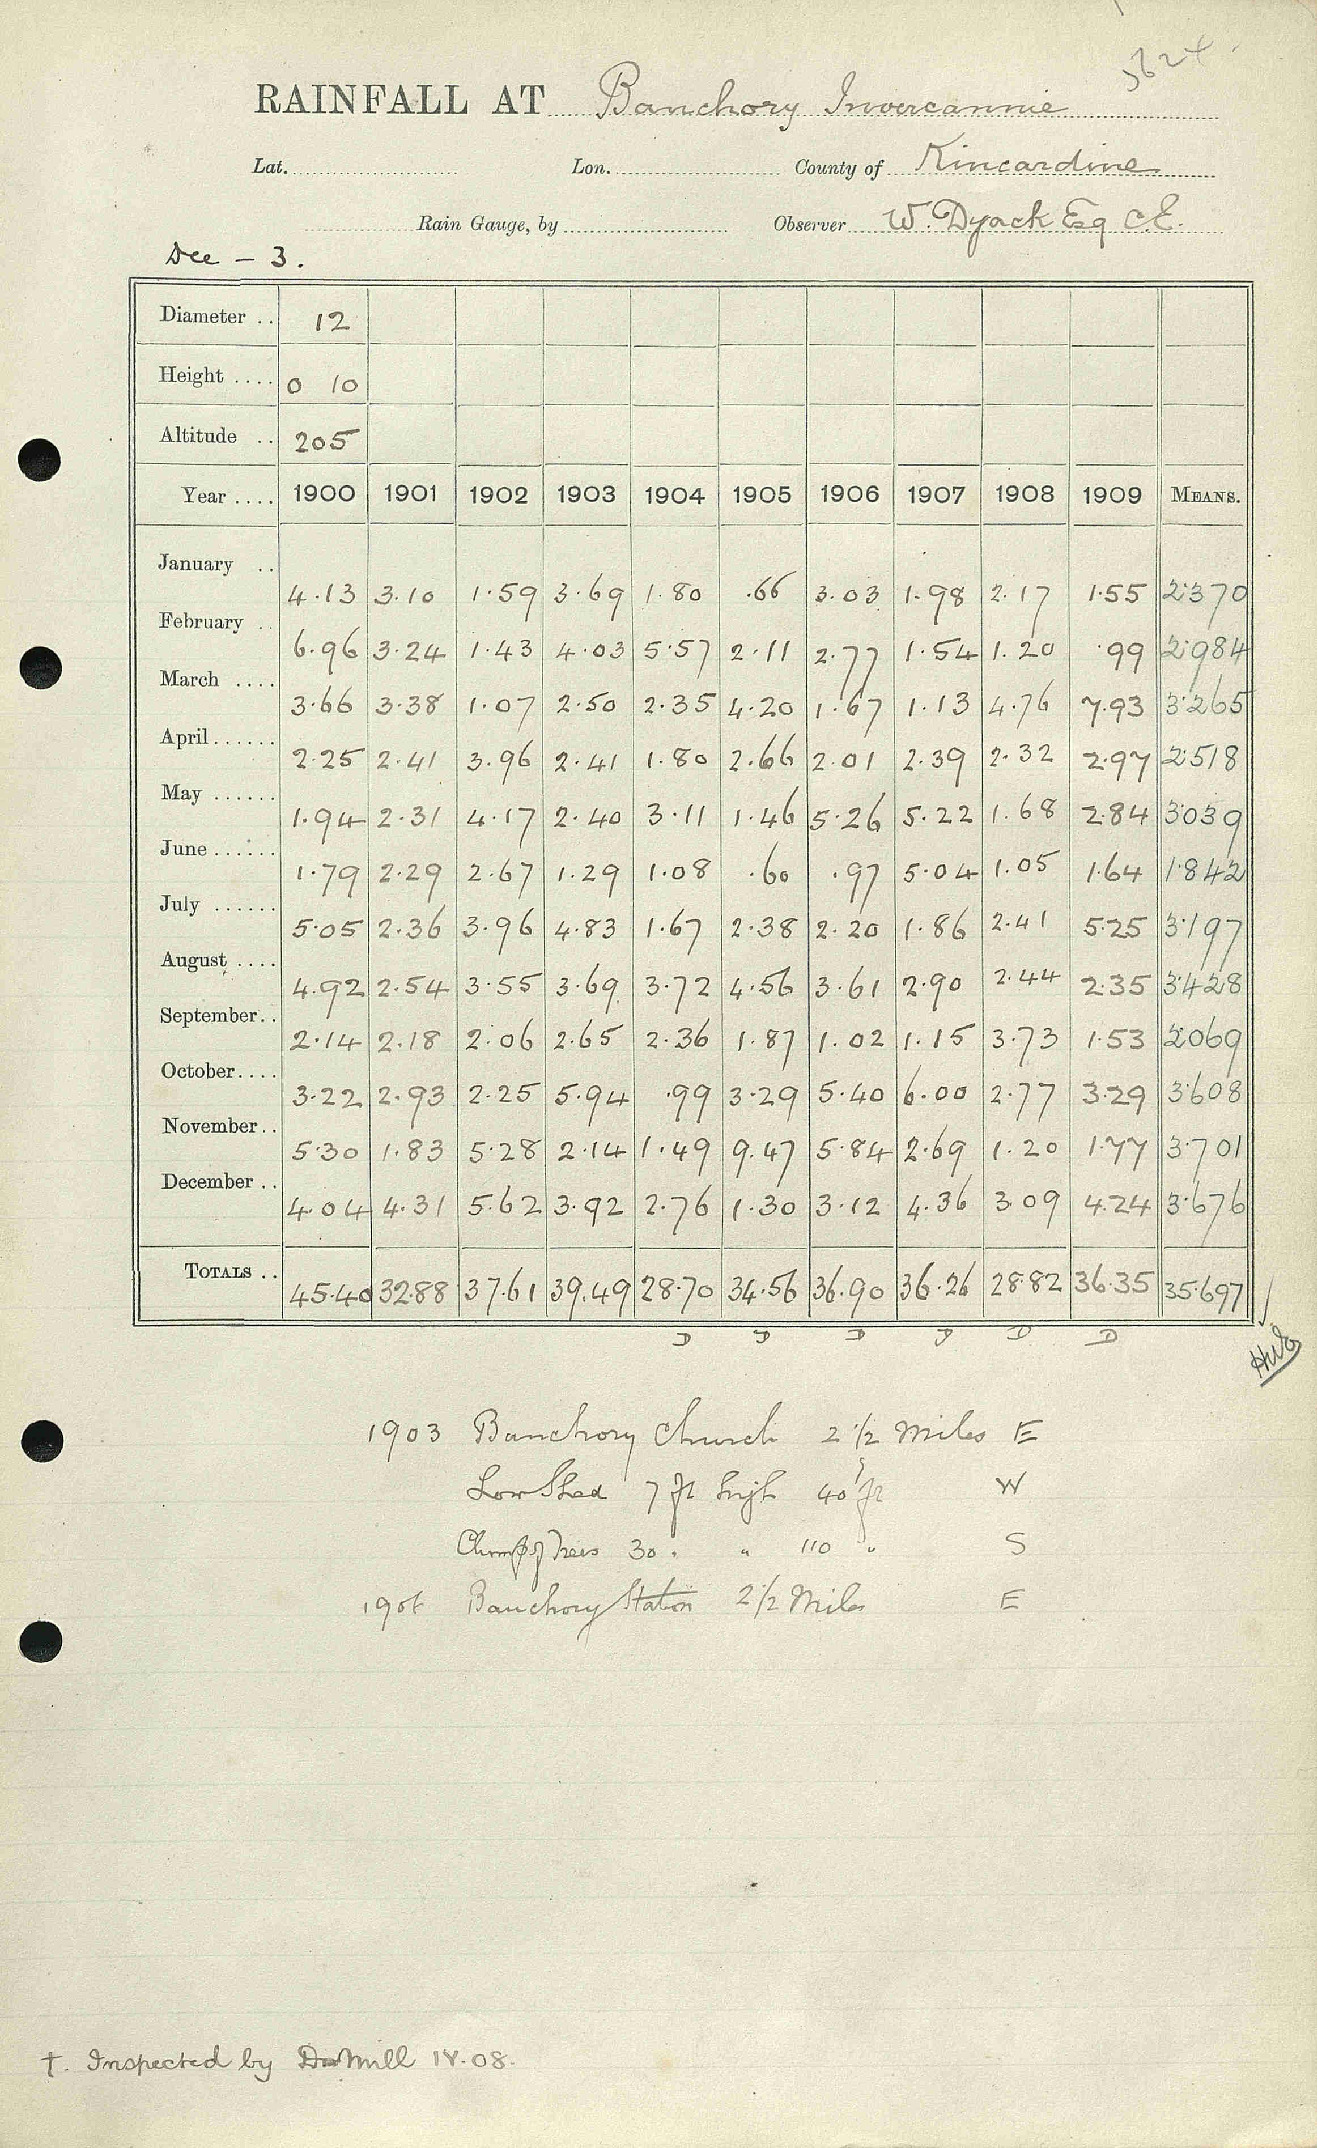 5624
RAINFALL AT Banchory Invercannie
Lat. Lon. County of Kincardine
Rain Gauge, by Observer W. Dyack Esq C.E.
Dee - 3.
Diameter .. 12
Height .... 0 10
Altitude .. 205
Year .... 1900 1901 1902 1903 1904 1905 1906 1907 1908 1909 MEANS.
January .. 4.13 3.10 1.59 3.69 1.80 .66 3.03 1.98 2.17 1.55 2.370
February .. 6.96 3.24 1.43 4.03 5.57 2.11 2.77 1.54 1.20 .99 2.984
March .... 3.66 3.38 1.07 2.50 2.35 4.20 1.67 1.13 4.76 7.93 3.265
April...... 2.25 2.41 3.96 2.41 1.80 2.66 2.01 2.39 2.32 2.97 2.518
May ...... 1.94 2.31 4.17 2.40 3.11 1.46 5.26 5.22 1.68 2.84 3.039
June ...... 1.79 2.29 2.67 1.29 1.08 .60 .97 5.04 1.05 1.64 1.842
July ...... 5.05 2.36 3.96 4.83 1.67 2.38 2.20 1.86 2.41 5.25 3.197
August .... 4.92 2.54 3.55 3.69 3.72 4.56 3.61 2.90 2.44 2.35 3.428
September.. 2.14 2.18 2.06 2.65 2.36 1.87 1.02 1.15 3.73 1.53 2.069
October.... 3.22 2.93 2.25 5.94 .99 3.29 5.40 6.00 2.77 3.29 3.608
November.. 5.30 1.83 5.28 2.14 1.49 9.47 5.84 2.69 1.20 1.77 3.701
December .. 4.04 4.31 5.62 3.92 2.76 1.30 3.12 4.36 3.09 4.24 3.676
TOTALS .. 45.40 32.88 37.61 39.49 28.70 34.56 36.90 36.26 28.82 36.35 35.697
D D D D D D
1903 Banchory Church 2 1/2 Miles E
Low Shed 7 ft high 40 ft W
Clump of Trees 30 " " 110 " S
Banchory Station 2 1/2 Miles E
†. Inspected by Mill IV.08.